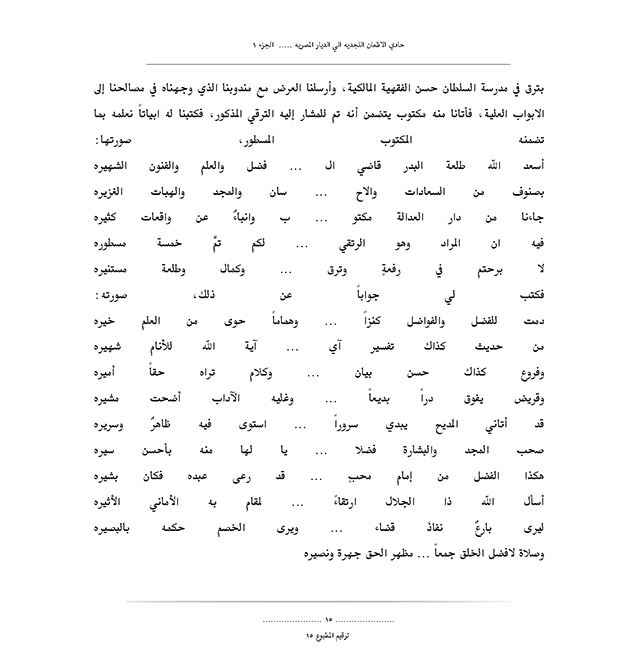 حادي الاظعان النجديه الي الديار المصريه ..... الجزء ١
بترق في مدرسة السلطان حسن الفقهية المالكية، وأرسلنا العرض مع مندوبنا الذي وجهناه في مصالحنا إلى
الابواب العلية، فأتانا منه مكتوب يتضمن أنه تم للمشار إليه الترقي المذكور، فكتبنا له ابياتاً نعلمه بما
تضمنه المكتوب المسطور، صورتها:
أسعد الله طلعة البدر قاضي ال ... فضل والعلم والفنون الشهيره
بصنوف من السعادات والاح ... سان والمجد والهبات الغزيره
جاءنا من دار العدالة مكتو ... ب وانباءٌ عن واقعات كثيره
فيه ان المراد وهو الرتقي ... لكم تمَّ خمسة مسطوره
لا برحتم في رفعةٍ وترق ... وكمال وطلعة مستنيره
فكتب لي جواباً عن ذلك، صورته:
دمت للفضل والفواضل كنزاً ... وهماماً حوى من العلم خيره
من حديث كذاك تفسير آي ... آية الله للأنام شهيره
وفروع كذاك حسن بيان ... وكلام تراه حقاً أميره
وقريض يفوق دراً بديعاً ... وغليه الآداب أضحت مشيره
قد أتاني المديح يبدي سروراً ... استوى فيه ظاهرٌ وسريره
صحب المجد والبشارة فضلا ... يا لها منه بأحسن سيره
هكذا الفضل من إمام محبٍ ... قد رعى عبده فكان بشيره
أسأل الله ذا الجلال ارتقاءً ... لمقام به الأماني الأثيره
ليرى بارعٌ نفاذ قضاء ... ويرى الخصم حكمه بالبصيره
وصلاة لافضل الخلق جمعاً ... مظهر الحق جهرة ونصيره
...................... ١٥ ......................
ترقيم المطبوع ١٥